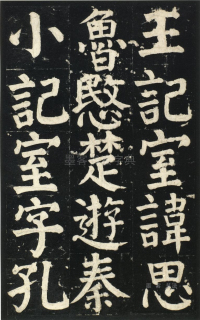 王記室諱思
魯愍楚遊秦
小記室字孔